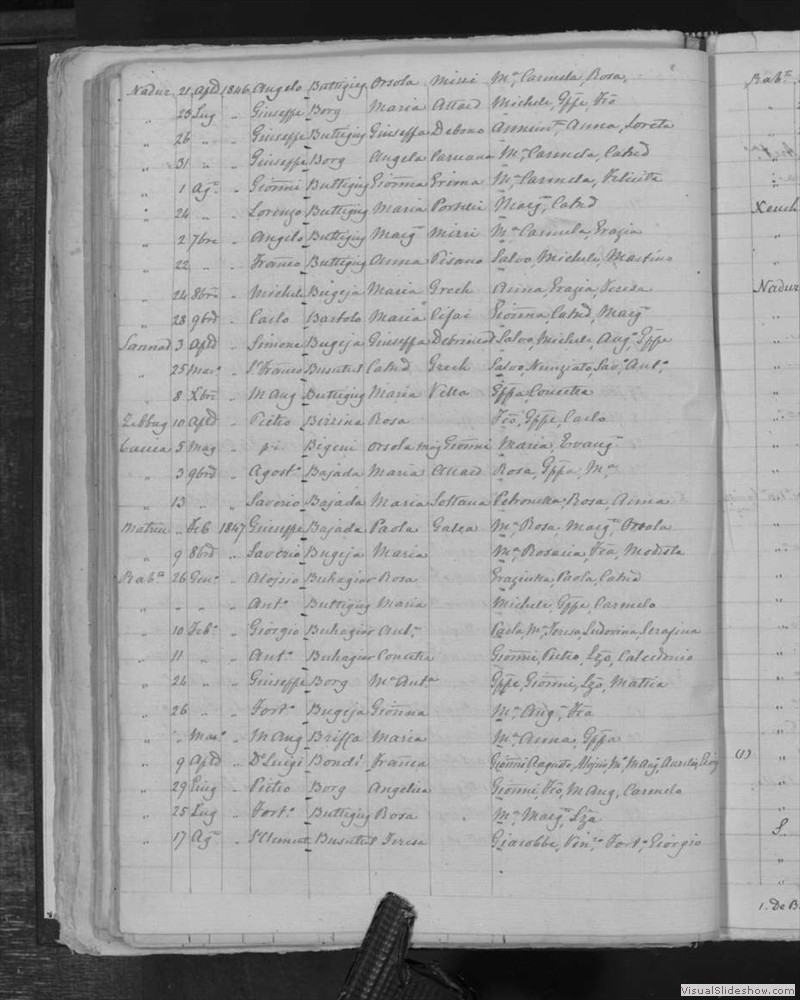 Nadur 21 Apd 1846 Angelo Buttigieg Orsola Mizzi Mª Carmela, Rosa
" 23 Lug " Giuseppe Borg Maria Attard Michele, Gppe, Fco
" 26 " " Giuseppe Buttigieg Giuseppa Debono Annunta, Anna, Loreta
" 31 " " Giuseppe Borg Angela Caruana Mª Carmela, Catnd
" 1 Agº " Gionni Buttigieg Gionna Grima Mª Carmela, Felicita
" 24 " " Lorenzo Buttigieg Maria Portelli Marg, Catnd
" 2 7bre " Angelo Buttigieg Marg Mizzi Mª Carmela, Grazia
" 22 " " Franco Buttigieg Anna Pisano Salvo, Michele, Martino
" 24 8bre " Michele Bugeja Maria Grech Anna, Grazia, Teresa
" 28 9bre " Carlo Bartolo Maria Cefai Gionna, Catnd, Marg
Sannat 3 Apd " Simone Bugeja Giuseppa Debrincat Salvo, Michele, Aug, Gppe
" 25 Marº " Sr Franco Busuttil Catnd Grech Salvo, Nunziato, Savº, Antº
" 8 Xbre " M Aug Buttigieg Maria Vella Gppa, Concetta
Zebbug 10 Apd " Pietro Rosa Fco, Gppe, Carlo
Caccia 5 Mag " Orsola Gionni Maria, Evang
" 3 9bre " Agostº Bajada Maria Attard Rosa, Gppa, Mª
" 13 " " Saverio Bajada Maria Soltana Petronilla, Rosa, Anna
" Feb 1847 Giuseppe Bajada Paola Galea Mª Rosa, Marg, Orsola
" 9 8bre " Saverio Bugeja Maria Mª Rosaria, Fca, Modesta
Rabto 26 Genº " Aloisio Buhagiar Rosa Graziulla, Paola, Catnd
" " " Antº Buttigieg Maria Michele, Gppe, Carmelo
" 10 Febº " Giorgio Buhagiar Antª Paola, Mª Teresa, Ludovina, Serafina
" 11 " " Antº Buhagiar Concetta Gionni, Pietro, Lzo, Calcedonio
" 24 " " Giuseppe Borg Mª Antª Gppe, Gionni, Lzo, Mattia
" 26 " " Fortº Bugeja Gionna Mª Aug, Fca
" " Marº " M Aug Briffa Maria Mª Anna, Gppa
" 9 Apd " Dr Luigi Bondi Franca Gionni, Augusto, Alojsio, Mª M Aug, Aurelio, Giorg (1)
" 29 Giug " Pietro Borg Angelica Gionni, Fco, M Aug, Carmelo
" 25 Lug " Fortº Buttigieg Rosa Mª Marg, Lza
" 17 Agº " Sr Clement Busuttil Teresa Giacobbe, Vinº, Fortº, Giorgio
Rabto
Nadur
S.
1. De B
VisualSlideshow.com